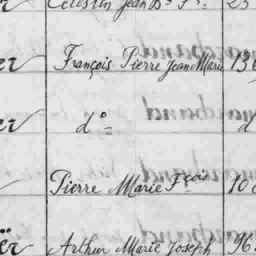 Célestin Jean Bte Fs 23
er François Pierre Jean Marie 13
er do d
Pierre Marie Fçois 10
er Arthur Marie Joseph 96